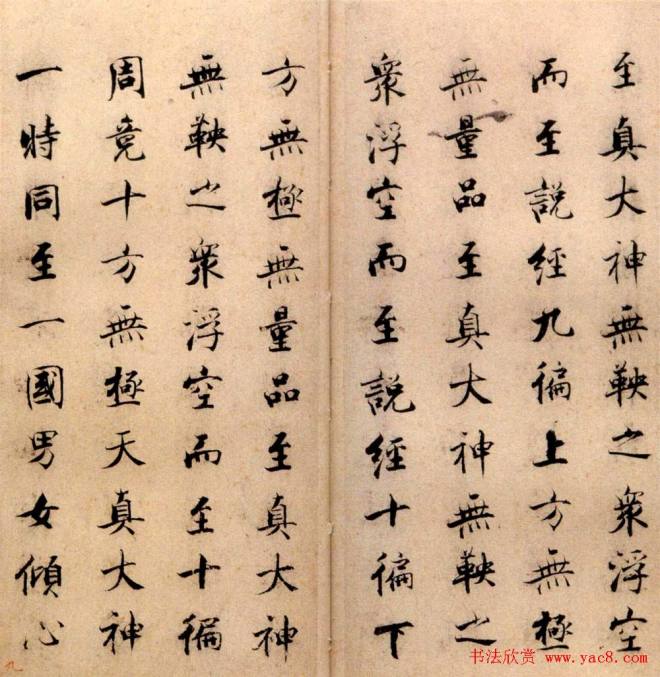 至真大神無鞅之衆浮空
而至說經九徧上方無極
無量品至真大神無鞅之
衆浮空而至說經十徧下
方無極無量品至真大神
無鞅之衆浮空而至十徧
周竟十方無極天真大神
一時同至一國男女傾心
九
书法欣赏 www.yac8.com